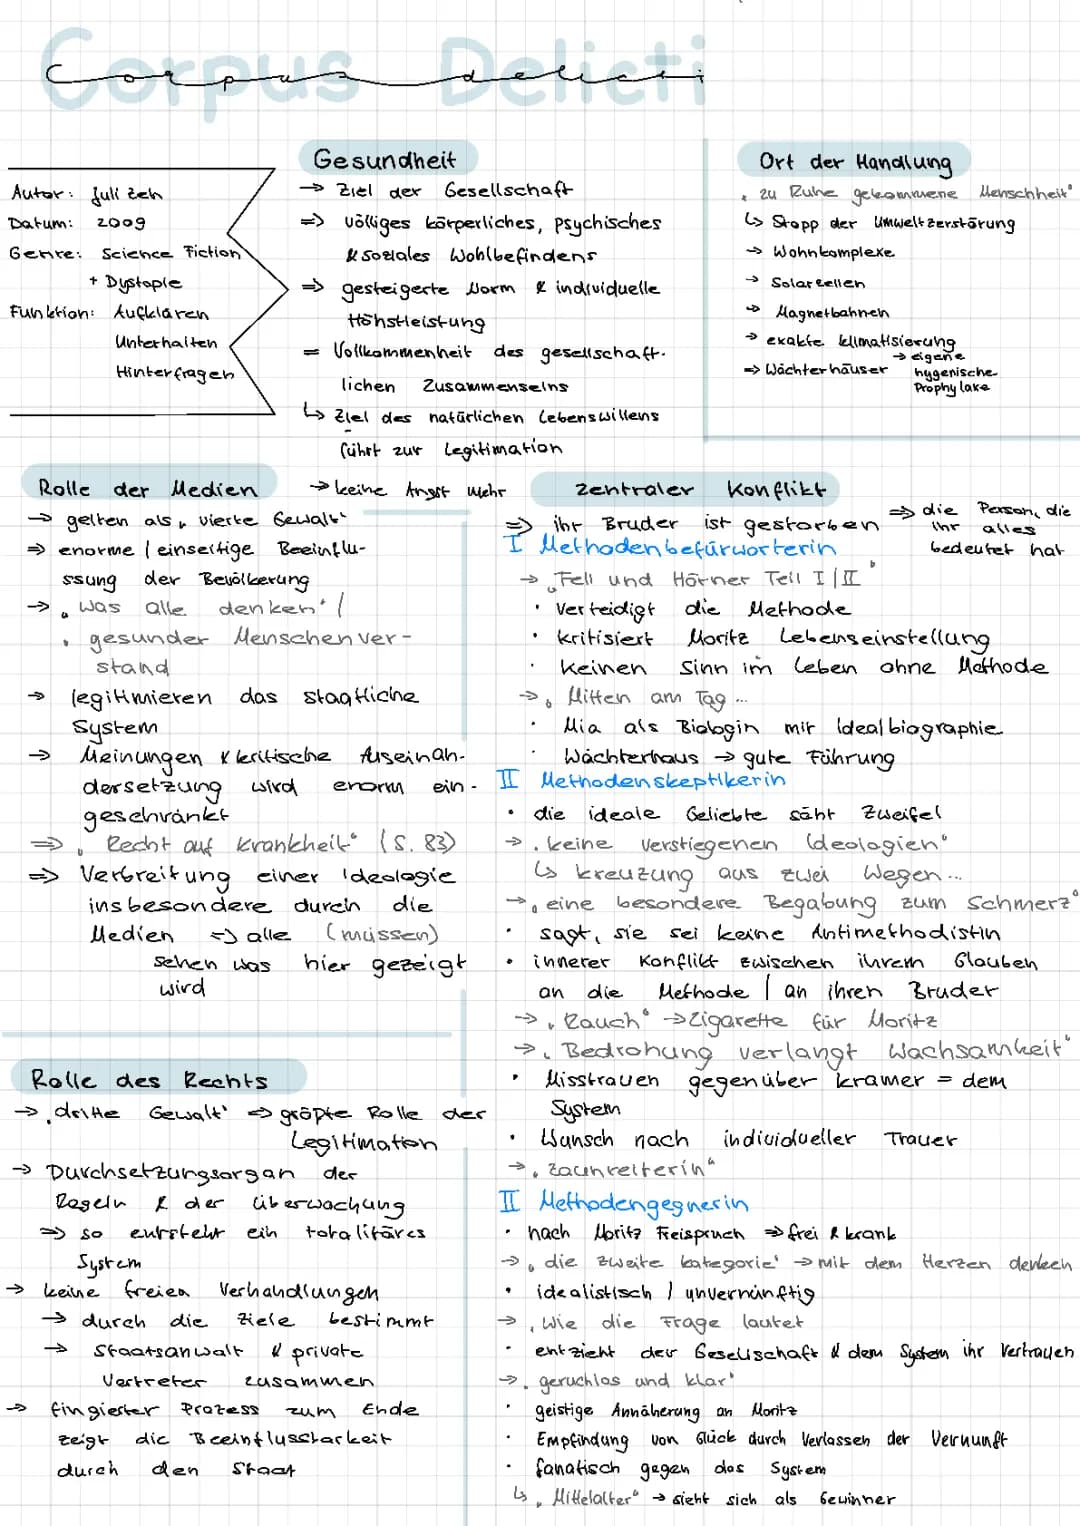 Corpus Delicti
Corpus delicti
Autor: Juli Zeh
Datum: 2009
Genre: Science Fiction
+ Dystopie
Funktion: Aufklären
Unterhalten
Hinterfragen
Gesundheit
→ Ziel der Gesellschaft
⇒ völliges körperliches, psychisches
& soziales Wohlbefindens
⇒ gesteigerte Norm & individuelle
Höhstleistung
= Vollkommenheit des gesellschaft-
lichen Zusammenseins
↳ Ziel des natürlichen Lebenswillens
führt zur Legitimation
→ keine Angst mehr
Ort der Handlung
„zu Ruhe gekommene Menschheit"
↳ Stopp der Umweltzerstörung
→ Wohnkomplexe
→ Solarzellen
→ Magnetbahnen
→ exakte Klimatisierung
⇒ Wächterhäuser → eigene
hygenische
Prophylaxe
Rolle der Medien
→ gelten als „vierte Gewalt"
⇒ enorme / einseitige Beeinflu-
ssung der Bevölkerung
→ „Was alle denken" /
„gesunder Menschenver-
stand
→ legitimieren das staatliche
System
→ Meinungen & kritische Auseinan-
dersetzung wird enorm ein-
geschränkt
⇒ „Recht auf Krankheit" (S. 83)
⇒ Verbreitung einer Ideologie
insbesondere durch die
Medien ⇒ alle (müssen)
sehen was hier gezeigt
wird
Rolle des Rechts
→ „dritte Gewalt" ⇒ größte Rolle der
Legitimation
→ Durchsetzungsorgan der
Regeln & der Überwachung
⇒ so entsteht ein totalitäres
System
→ keine freien Verhandlungen
→ durch die Ziele bestimmt
→ Staatsanwalt & private
Vertreter zusammen
→ fingierter Prozess zum Ende
zeigt die Beeinflussbarkeit
durch den Staat
zentraler Konflikt
⇒ ihr Bruder ist gestorben ⇒ die Person, die
ihr alles
bedeutet hat
I Methodenbefürworterin
→ „Fell und Hörner Teil I/II"
• Verteidigt die Methode
• kritisiert Moritz Lebenseinstellung
• Keinen Sinn im Leben ohne Methode
→ „Mitten am Tag...
• Mia als Biologin mit Idealbiographie
• Wächterhaus → gute Führung
II Methodenskeptikerin
• die ideale Geliebte säht Zweifel
→ „keine verstiegenen Ideologien"
↳ Kreuzung aus zwei Wegen...
→ „eine besondere Begabung zum Schmerz"
• sagt, sie sei keine Antimethodistin
• innerer Konflikt zwischen ihrem Glauben
an die Methode / an ihren Bruder
→ „Rauch" → Zigarette für Moritz
→ „Bedrohung verlangt Wachsamkeit"
• Misstrauen gegenüber Kramer = dem
System
• Wunsch nach individueller Trauer
→ „Zaunreiterin"
II Methodengegnerin
• nach Moritz Freispruch ⇒ frei & krank
→ „die zweite Kategorie" → mit dem Herzen denken
• idealistisch / unvernünftig
→ „Wie die Frage lautet
• entzieht der Gesellschaft & dem System ihr Vertrauen
→ „geruchlos und klar"
• geistige Annäherung an Moritz
• Empfindung von Glück durch Verlassen der Vernunft
• fanatisch gegen das System
↳ „Mittelalter" → sieht sich als Gewinner